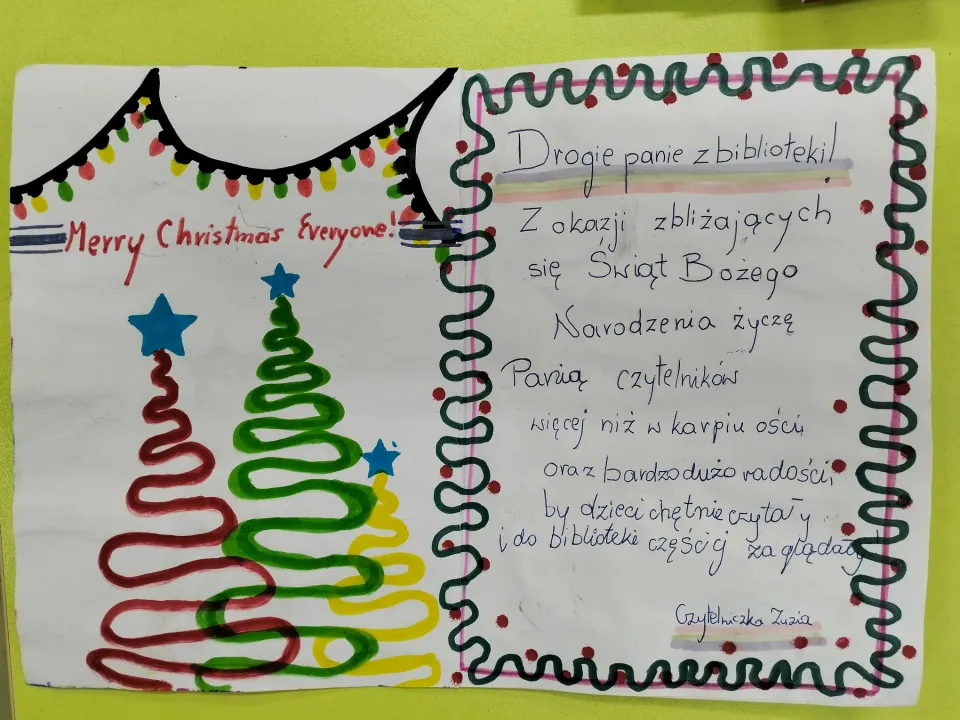 Merry Christmas Everyone!
Drogie panie z biblioteki!
Z okazji zbliżających
się Świąt Bożego
Narodzenia życzę
Panią czytelników
więcej niż w karpiu ości,
oraz bardzo dużo radości,
by dzieci chętnie czytały
i do biblioteki częściej zaglądały!
Czytelniczka Zuzia